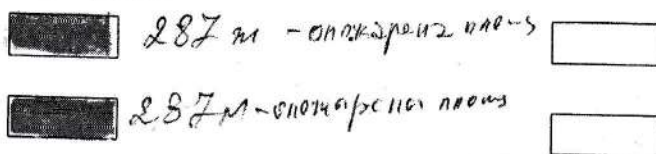 287 м - опожарена площ
287м-опожарена площ